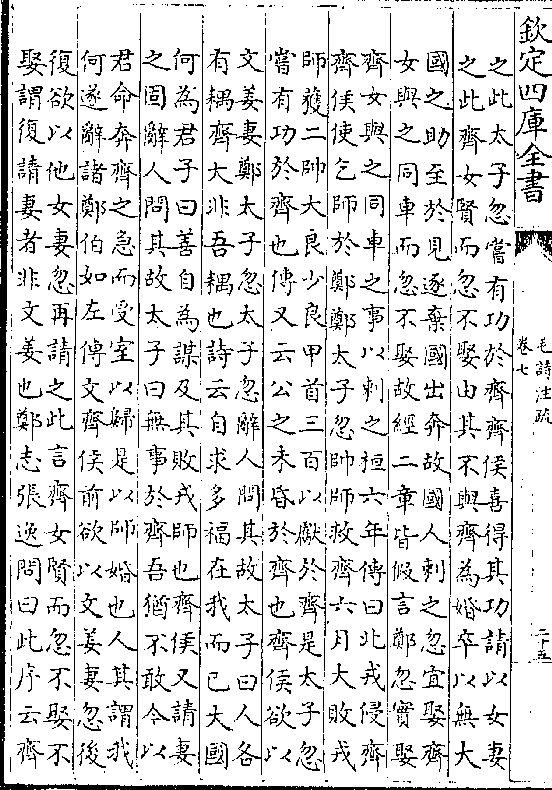 欽定四庫全書
毛詩注疏
卷七
二十五
之此太子忽嘗有功於齊齊侯喜得其功請以女妻
之此齊女賢而忽不娶由其不與齊為婚卒以無大
國之助至於見逐棄國出奔故國人刺之忽宜娶齊
女與之同車而忽不娶故經二章皆假言鄭忽實娶
齊女與之同車之事以刺之桓六年傳曰北戎侵齊
齊侯使乞師於鄭鄭太子忽帥師救齊六月大敗戎
師獲二帥大良少良甲首三百以獻於齊是太子忽
嘗有功於齊也傳又云公之未昏於齊也齊侯欲以
文姜妻鄭太子忽太子忽辭人問其故太子曰人各
有耦齊大非吾耦也詩云自求多福在我而已大國
何為君子曰善自為謀及其敗戎師也齊侯又請妻
之固辭人問其故太子曰無事於齊吾猶不敢今以
君命奔齊之急而受室以歸是以師婚也人其謂我
何遂辭諸鄭伯如左傳文齊侯前欲以文姜妻忽後
復欲以他女妻忽再請之此言齊女賢而忽不娶不
娶謂復請妻者非文姜也鄭志張逸問曰此序云齊